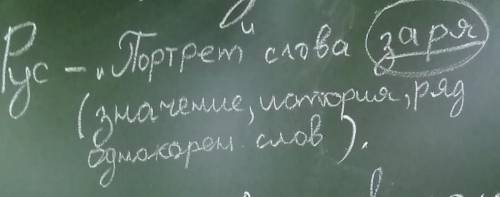 Рус – „Портрет слова заря
(значение, история, ряд
однокорен. слов).